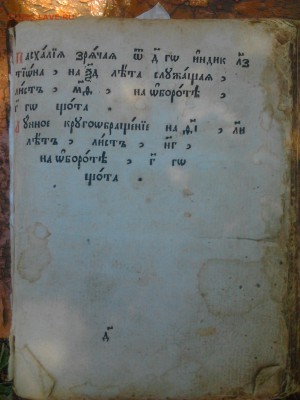 Пасха́лїя зрѧ́чаѧ ѿ д҃ гѡ и҆ндик
тїѡ́на , на лѣ́та слꙋ́жащаѧ ,
ли́стъ , на ѡ҆боро́тѣ ,
г҃ гѡ щота •
Лꙋ́нное крꙋгоѡбраще́нїе на ,
лѣ́тъ , ли́стъ , н҃г ,
на ѡ҆боро́тѣ , г҃ гѡ
що́та •
д҃